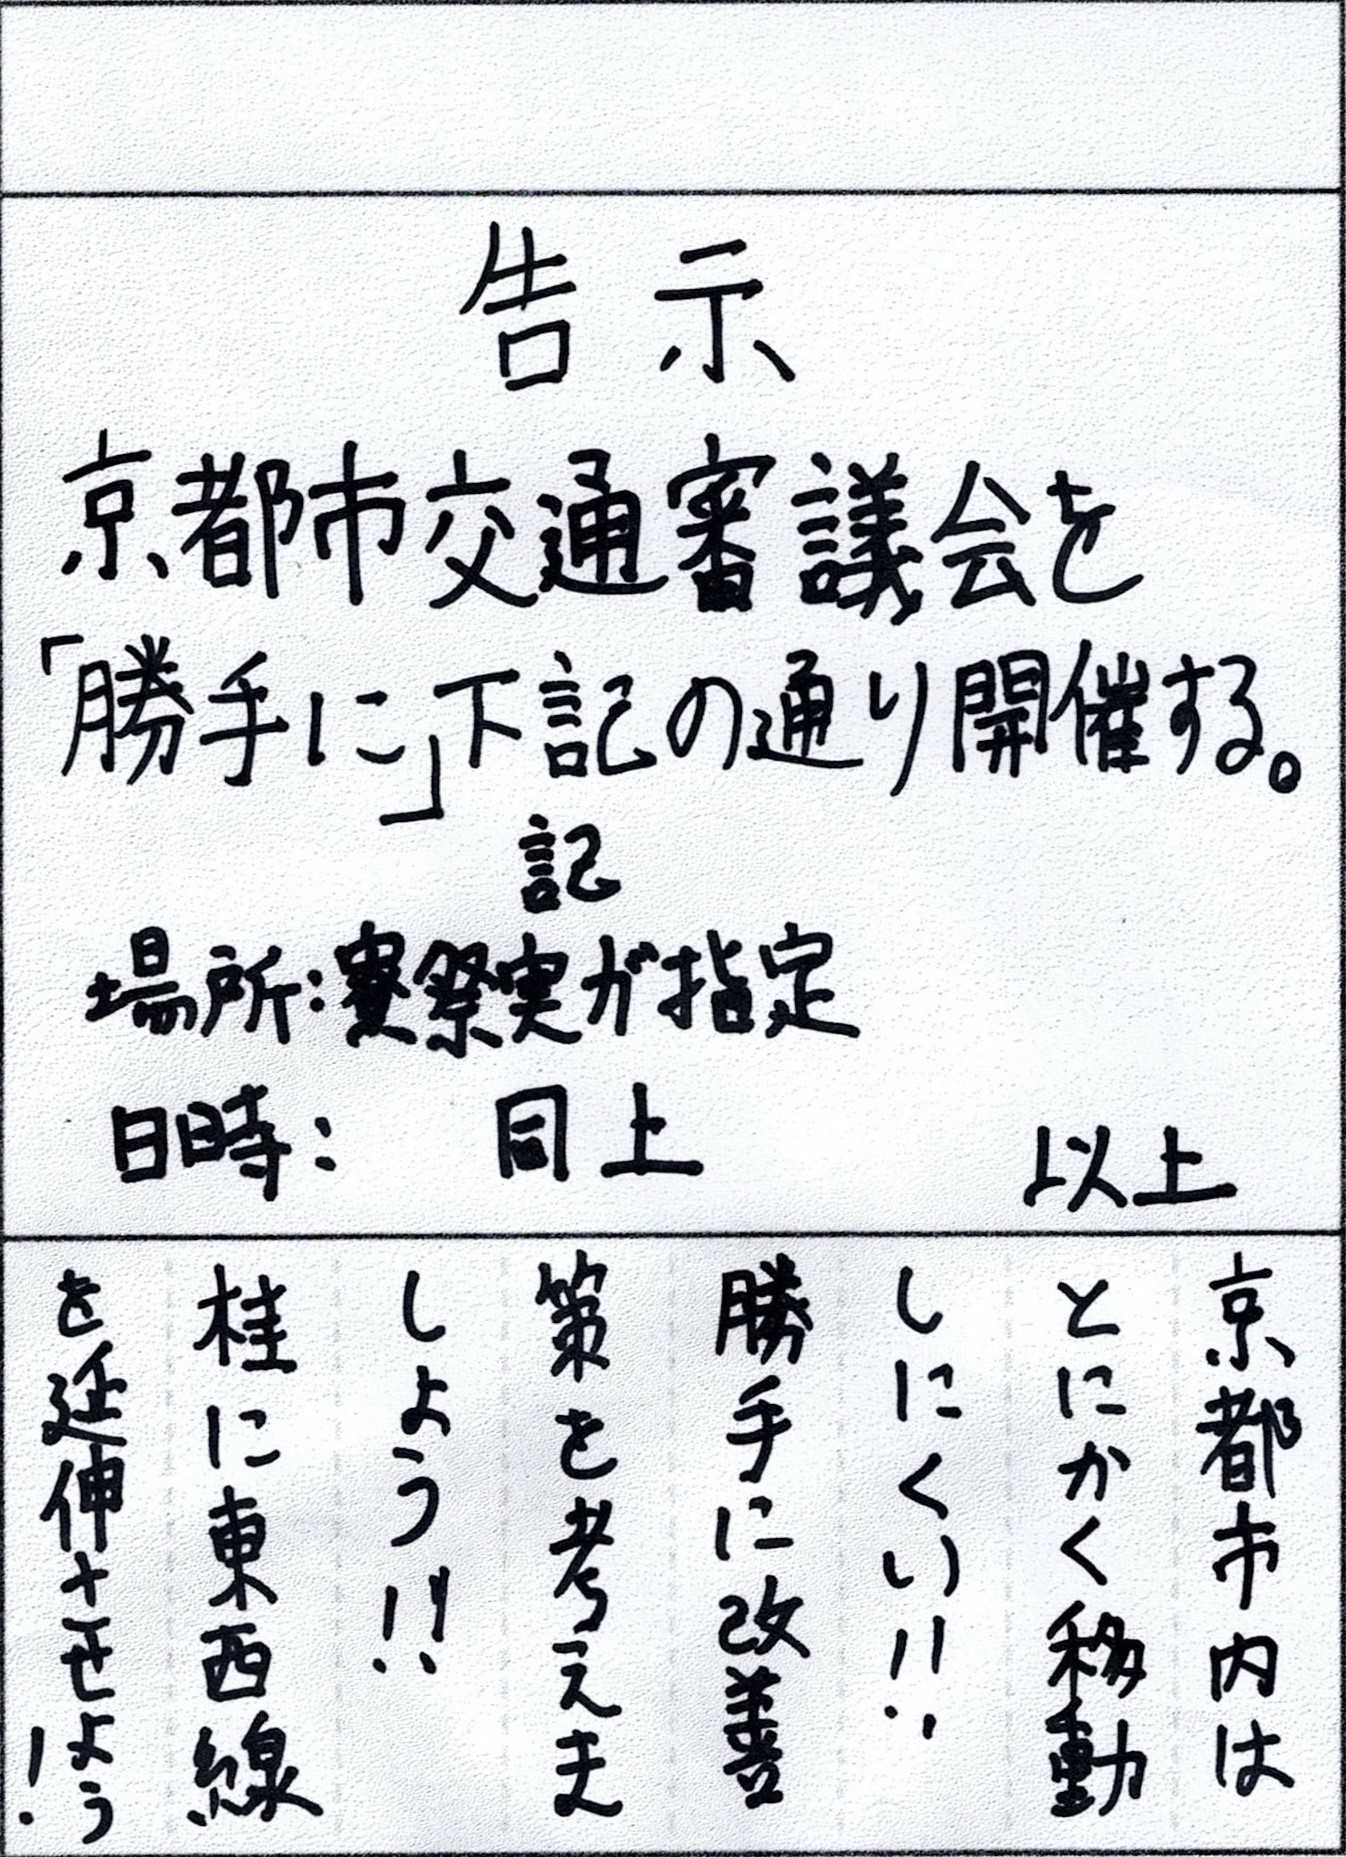 告示
京都市交通審議会を
「勝手に」下記の通り開催する。
記
場所:寮祭実が指定
日時: 同上
以上
京都市内は
とにかく移動
しにくい!!
勝手に改善
策を考えま
しよう!!
桂に東西線
を延伸させよう!